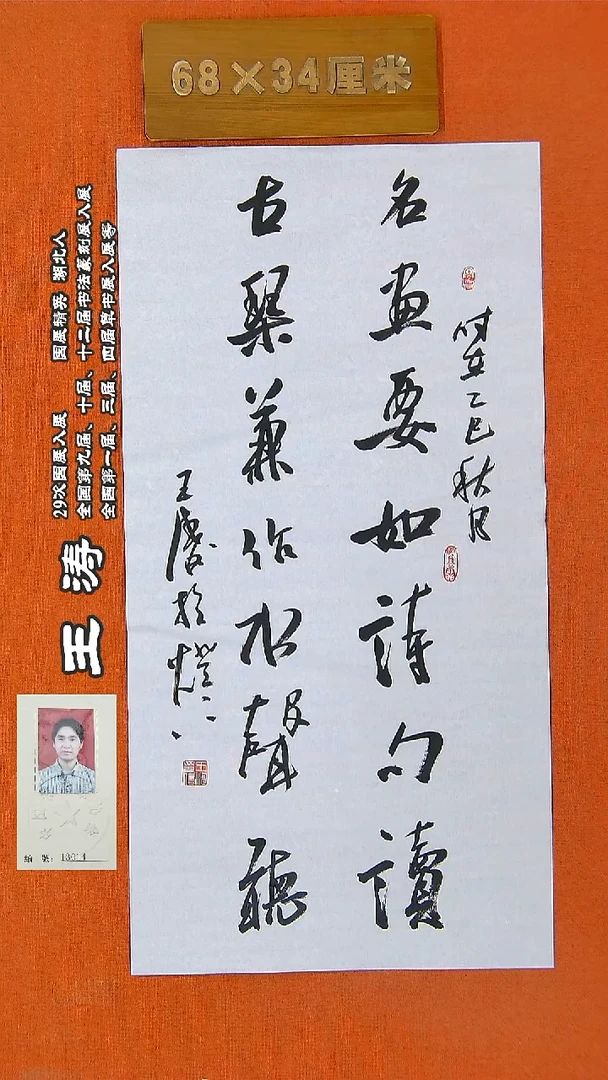 68×34厘米
時在乙巳秋月
名畫要如詩句讀
古琴兼作水聲聽
王濤
王涛
29次国展入展 国展精英 湖北人
全国第九届、十届、十二届书法篆刻展入展
全国第一届、三届、四届草书展入展等
编号: